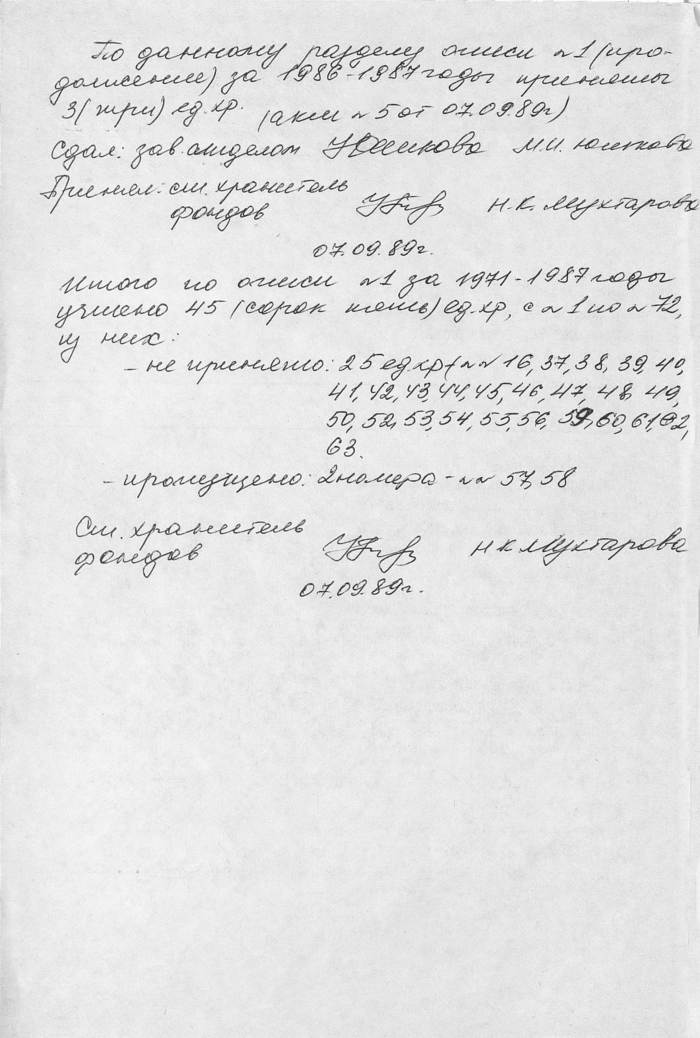 По данному разделу описи №1 (про-
должение) за 1986-1987 годы приняты
3 (три) ед.хр. (акт №5 от 07.09.89г.)
Сдал: зав. отделом М.И. Юшкова
Принял: ст. хранитель
фондов Н.К. Мухтарова
07.09.89г.
Итого по описи №1 за 1971-1987 годы
учтено 45 (сорок пять) ед.хр, с №1 по №72,
из них:
- не принято: 25 ед.хр (№№ 16, 37, 38, 39, 40,
41, 42, 43, 44, 45, 46, 47, 48, 49,
50, 52, 53, 54, 55, 56, 59, 60, 61, 62,
63.
- пропущено: 2 номера - №№ 57, 58
Ст. хранитель
фондов Н.К. Мухтарова
07.09.89г.